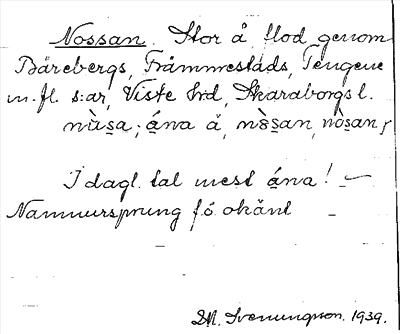 Nossan. Stor å flod genom
Bärebergs, Främmestads, Tengene
m. fl. s:ar, Viste hrd, Skaraborgs l.
nùsa; ána å, nòsan, nòsan,
I dagl. tal mest ána! —
Namnursprung f. ö. okänt
M. Svenungson. 1939.